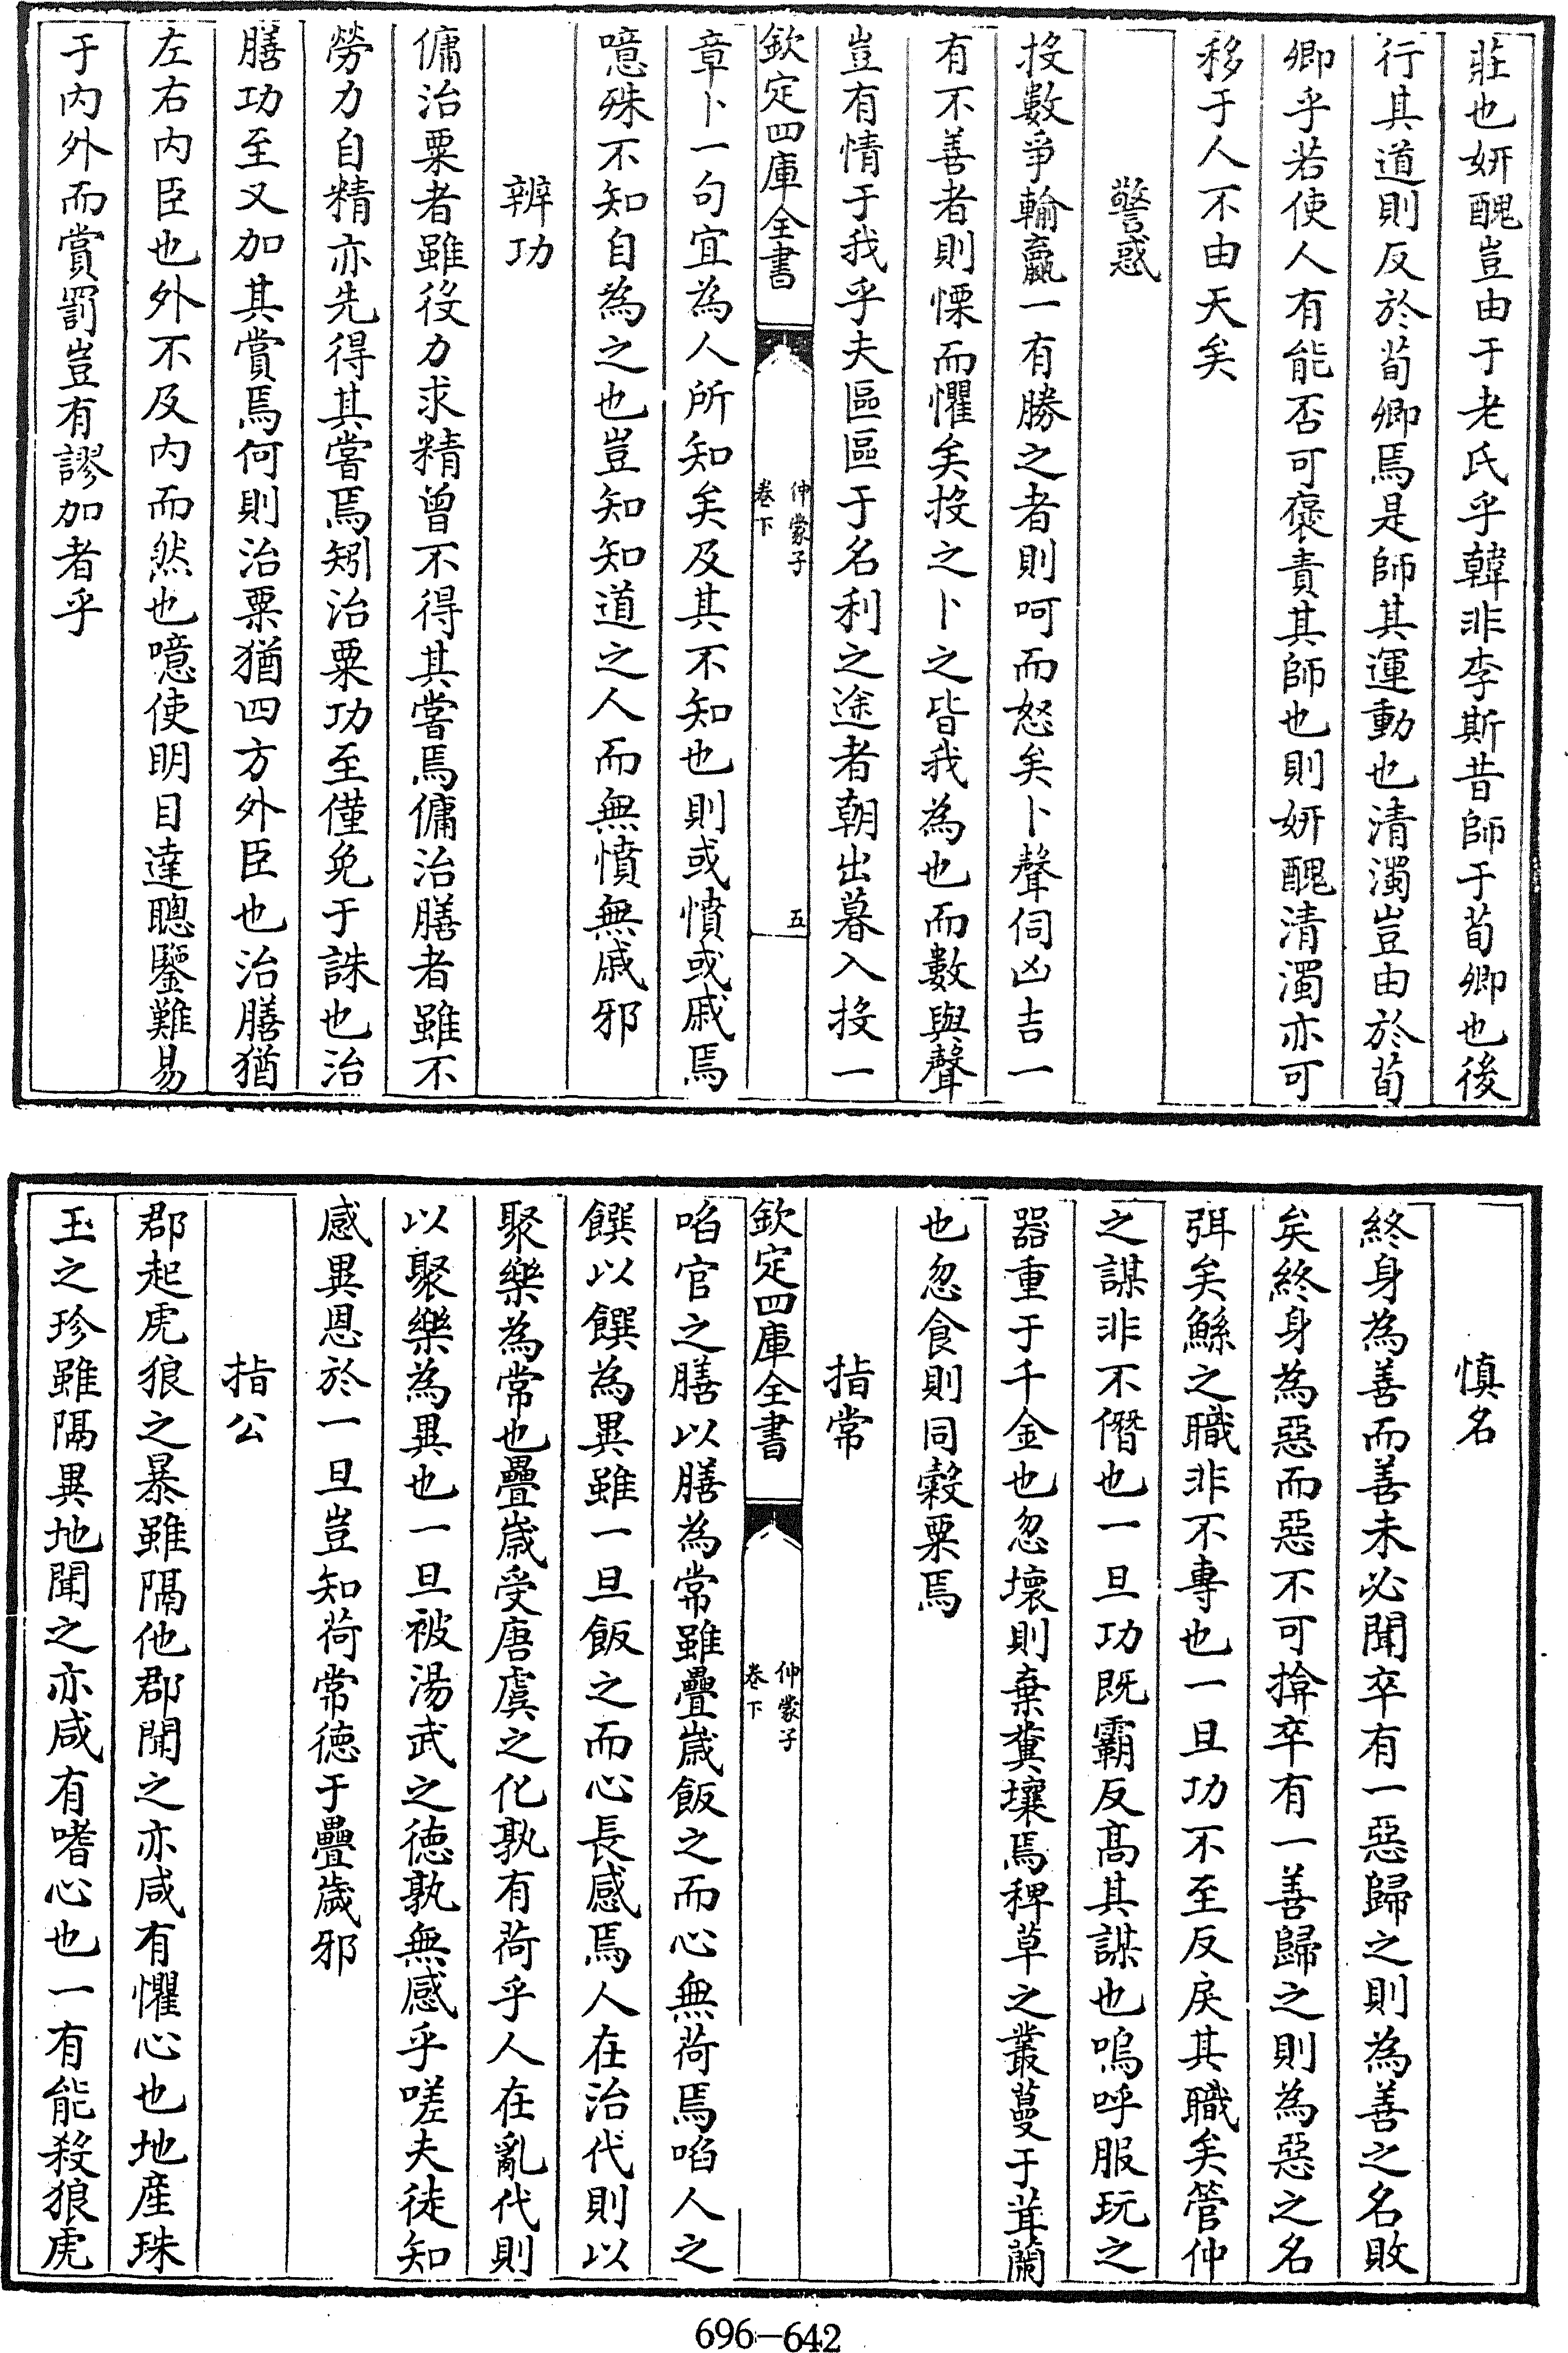 莊也妍醜豈由于老氏乎韓非李斯昔師于荀卿也後
行其道則反於荀卿焉是師其運動也清濁豈由於荀
卿乎若使人有能否可褒責其師也則妍醜清濁亦可
移于人不由天矣
警惑
投數爭輸贏一有勝之者則呵而怒矣卜聲伺凶吉一
有不善者則慄而懼矣投之卜之皆我為也而數與聲
豈有情于我乎夫區區于名利之途者朝出暮入投一
欽定四庫全書
仲蒙子
卷下
五
章卜一句宜為人所知矣及其不知也則或憤或戚焉
噫殊不知自為之也豈知知道之人而無憤無戚邪
辨功
傭治粟者雖役力求精曾不得其嘗焉傭治膳者雖不
勞力自精亦先得其嘗焉矧治粟功至僅免于誅也治
膳功至又加其賞焉何則治粟猶四方外臣也治膳猶
左右内臣也外不及内而然也噫使明目達聰鑒難易
于内外而賞罰豈有謬加者乎
慎名
終身為善而善未必聞卒有一惡歸之則為善之名敗
矣終身為惡而惡不可揜卒有一善歸之則為惡之名
弭矣鯀之職非不專也一旦功不至反戾其職矣管仲
之謀非不僭也一旦功既霸反髙其謀也嗚呼服玩之
器重于千金也忽壞則棄糞壤焉稗草之叢蔓于茸蘭
也忽食則同穀粟焉
指常
欽定四庫全書
仲蒙子
卷下
啗官之膳以膳為常雖疊歲飯之而心無荷焉啗人之
饌以饌為異雖一旦飯之而心長感焉人在治代則以
聚樂為常也疊歲受唐虞之化孰有荷乎人在亂代則
以聚樂為異也一旦被湯武之徳孰無感乎嗟夫徒知
感異恩於一旦豈知荷常徳于疊歲邪
指公
郡起虎狼之暴雖隔他郡聞之亦咸有懼心也地産珠
玉之珍雖隔異地聞之亦咸有嗜心也一有能殺狼虎
696-642